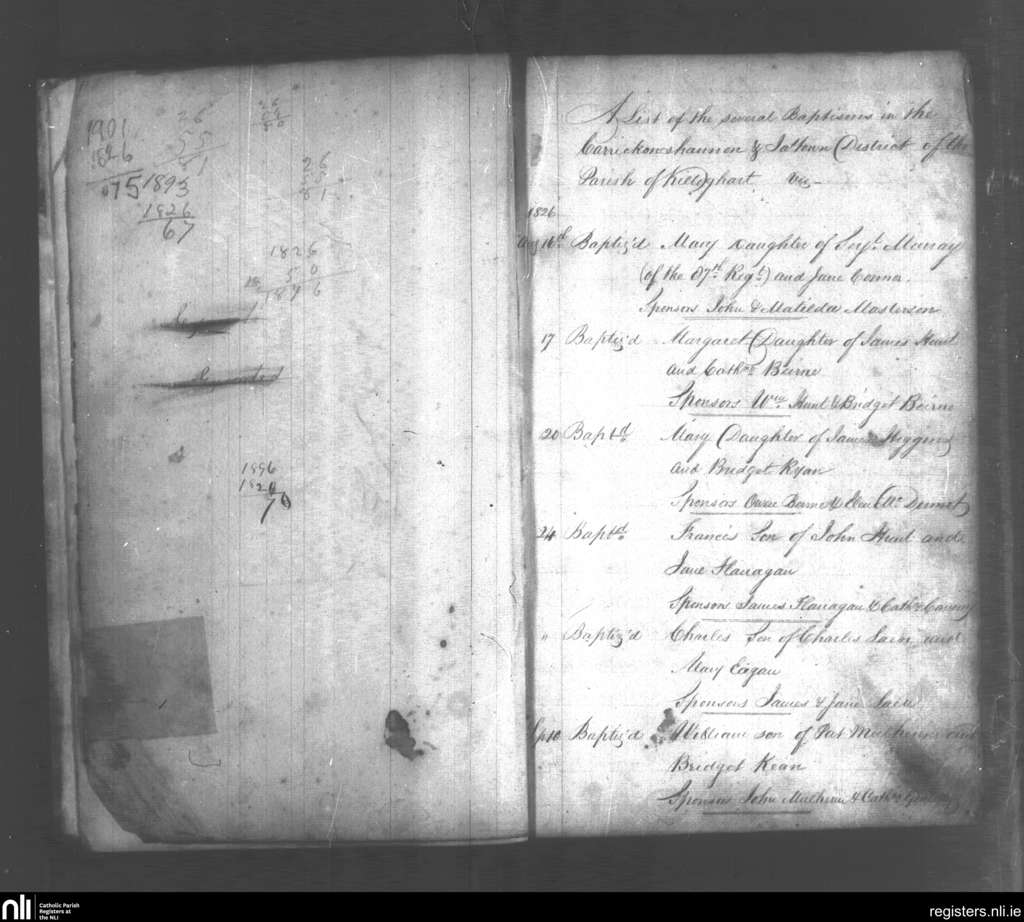 1901
1826
075
26
55
81
1893
1826
67
26
55
81
1826
50
1876
1896
1826
70
A List of the several Baptisms in the
Carrickonshannon & Ja'town District of the
Parish of Killoghart Viz
1826
Aug 16th Baptiz'd Mary Daughter of Serjt Murray
(of the 07th Regt) and Jane Conna.
Sponsors John & Matilda Masterson
17 Baptiz'd Margaret Daughter of James Hunt
and Cathne Beirne
Sponsors Wm Hunt & Bridget Beirne
20 Baptd Mary Daughter of James Higgins
and Bridget Ryan
Sponsors Owen Beirne & McDermot
24 Baptd Francis Son of John Hunt and
Jane Flanagan
Sponsors James Flanagan & Cathe
" Baptiz'd Charles Son of Charles Lain and
Mary Eagan
Sponsors James & Jane Lain
Sep 10 Baptiz'd William son of Pat and
Bridget Kean
Sponsors John & Cathe
nli
Catholic Parish
Registers at
the NLI
registers.nli.ie